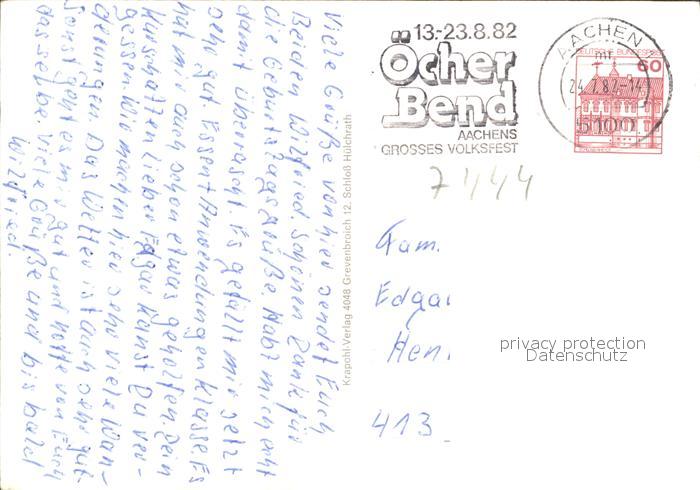 Viele Grüße von hier sendet Euch
Beiden Wilfried. Schönen Dank für
die Geburtstagsgrüße. Habt mich echt
damit überrascht. Es gefällt mir jetzt
sehr gut. Essen + Anwendungen Klasse. Es
hat mir auch schon etwas geholfen. Dein
lieber Edgar kannst Du ver-
gessen. Wir machen hier sehr viele Wan-
derungen. Das Wetter ist auch sehr gut.
Sonst geht es mir gut und hoffe von Euch
das selbe. Viele Grüße und bis bald
Wilfried.
Krapohl-Verlag 4048 Grevenbroich 12, Schloß Hülchrath
13.-23.8.82
Öcher
Bend
AACHENS
GROSSES VOLKSFEST
AACHEN
mr
24.7.82-14
5100
DEUTSCHE BUNDESPOST
60
7444
Fam.
Edgar
Hen.
413
privacy protection
Datenschutz